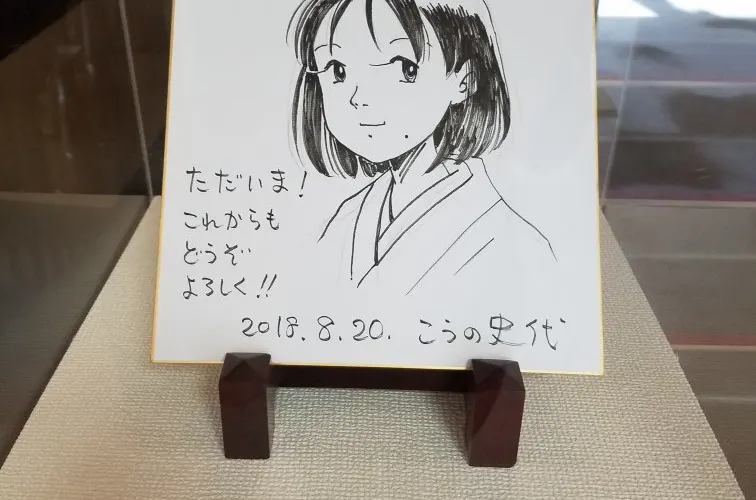 ただいま!
これからも
どうぞ
よろしく!!
2018.8.20. こうの史代